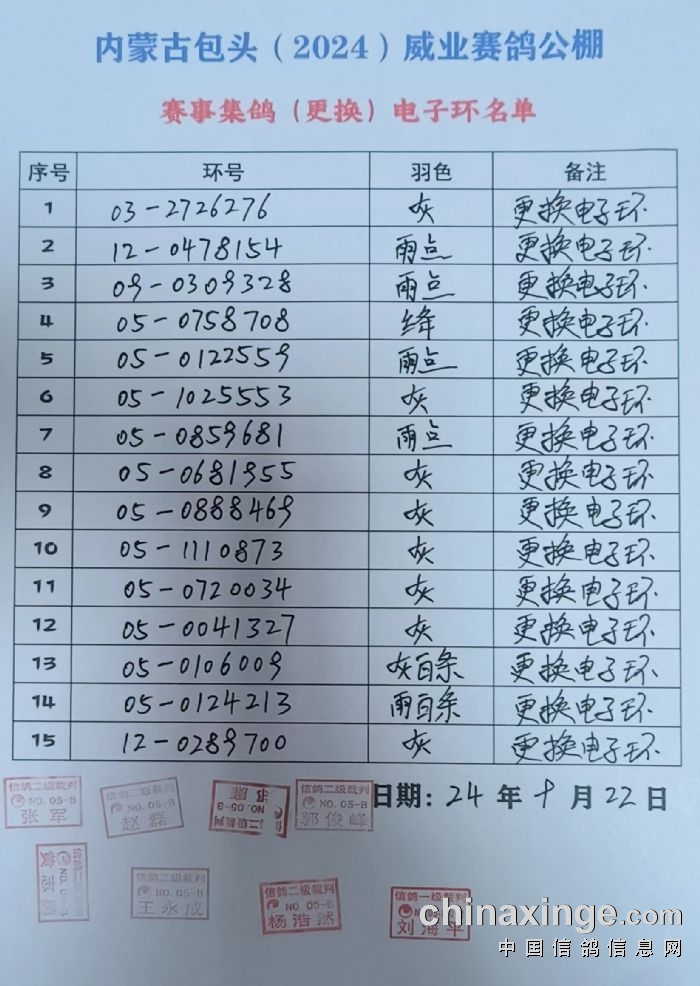 内蒙古包头（2024）威业赛鸽公棚
赛事集鸽（更换）电子环名单
序号 环号 羽色 备注
1 03-2726276 灰 更换电子环
2 12-0478154 雨点 更换电子环
3 09-0309328 雨点 更换电子环
4 05-0758708 绛 更换电子环
5 05-0122559 雨点 更换电子环
6 05-1025553 灰 更换电子环
7 05-0859681 雨点 更换电子环
8 05-0681955 灰 更换电子环
9 05-0888469 灰 更换电子环
10 05-1110873 灰 更换电子环
11 05-0720034 灰 更换电子环
12 05-0041327 灰 更换电子环
13 05-0106009 灰白条 更换电子环
14 05-0124213 雨白条 更换电子环
15 12-0289700 灰 更换电子环
日期：24年10月22日
信鸽二级裁判 NO.05-B 张军
信鸽二级裁判 NO.05-B 赵磊
信鸽二级裁判 NO.05-B
信鸽二级裁判 NO.05-B 郭俊峰
信鸽二级裁判 NO.05-B 黄志
信鸽二级裁判 NO.05-B 王永成
信鸽二级裁判 NO.05-B 杨浩然
信鸽一级裁判 NO. 刘海平
chinaxinge.com
中国信鸽信息网